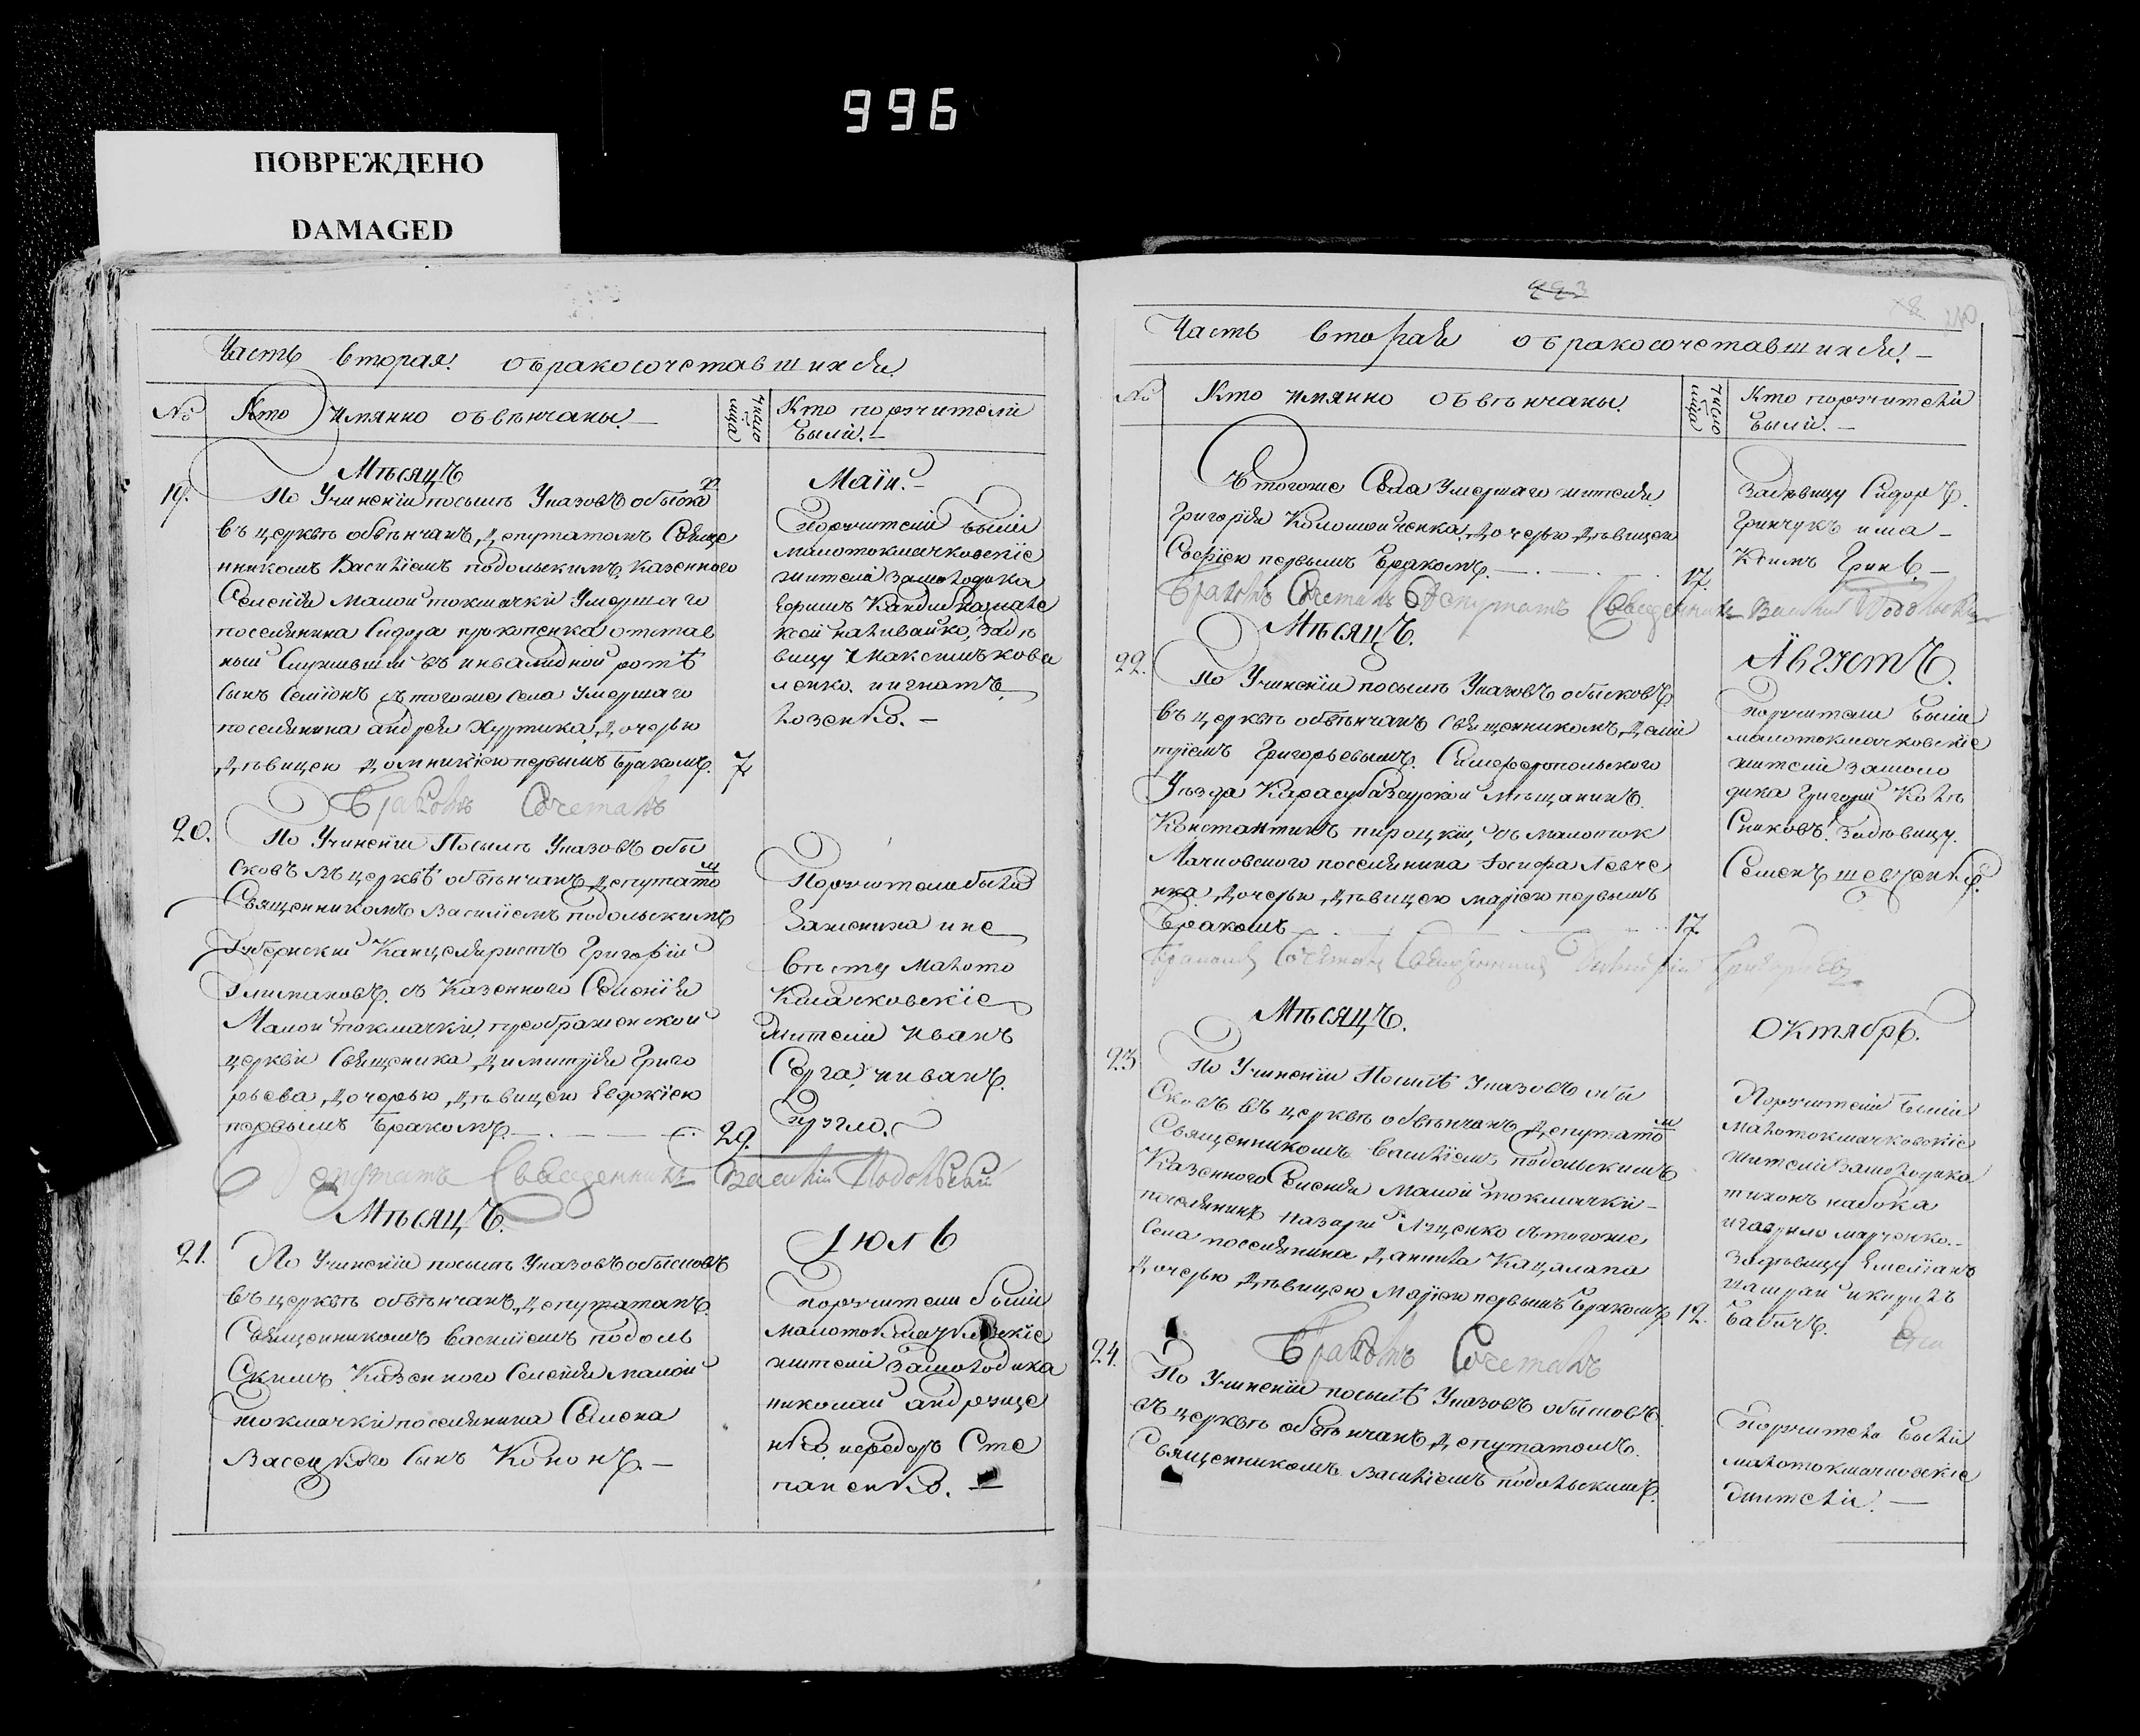 996
ПОВРЕЖДЕНО
DAMAGED
Часть вторая. о бракосочетавшихся.
№
Кто имянно обвѣнчаны.
число
Кто поручители
были.
Мѣсяцъ
Маіи.
19.
По учинении посылѣ указовъ обыско
въ церквѣ обвѣнчанъ, депутатомъ Свяще
нникомъ Василіемъ подольскимъ, казенного
Селенія малой токмачкі умершаго
поселянина Сидора прокопенка отстав
ный Служившій въ инвалидной ротѣ
Сынъ Семіонъ съ тогоже села умершаго
поселянина андрея Хуртика, дочерью
дѣвицею домникіею первымъ бракомъ.
7
Поручители были
малотокмачковскіе
жители замолодика
ковa
ленко. игнатъ
лозенко.
Бракомъ Сочеталъ
20.
По учинении Посылѣ указовъ обы
сковъ въ церквѣ обвѣнчанъ депутато м
Священникомъ Василіемъ подольскимъ
Губернский Канцеляристъ Григорій
съ Казенного Селенія
Малой токмачкі, преображенской
церкви Священика, димитрія Григо
рьева, дочерью, дѣвицею Евдокіею
первымъ бракомъ.
29.
Поручители были
Заженика и не
вѣсту малото
Кмачковскіе
жители иванъ
Серга, ииванъ.
Депутатъ Священникъ Василій Подольский
Мѣсяцъ.
Іюль
21.
По учинении посылѣ указовъ обысковъ
въ церквѣ обвѣнчанъ, депутатамъ.
Священникомъ Василіемъ подоль
скимъ Казенного Селенія малой
токмачкі поселянина Семена
Васецкого сынъ Кононъ.
поручители были
малотокмачковскіе
жители Замолодика
николай андрѣище
нко, Сте
паненко.
223
Часть вторая о бракосочетавшихся.
№
Кто имянно обвѣнчаны.
число
Кто поручители
были.
Съ тогоже Села умершаго жителя
Григорія Коломойченка, дочерью дѣвицею
Софіею первымъ бракомъ.
17
Задѣвицу Сидоръ
Гринчукъ има
Ксимъ Гринь.
Бракомъ Сочеталъ Депутатъ Священникъ Василий Подольский
Мѣсяцъ.
Августъ.
22.
По учинении посылѣ указовъ обысковъ
въ церквѣ обвѣнчанъ священникомъ, дами
тріемъ Григорьевымъ. Симферопольского
уѣзда Карасубазарской мѣщанинъ
Константинъ пироцкій, съ малоток
Мачковского поселянина Іосифа Левче
нка, дочерью, дѣвицею маріею первымъ
бракомъ
17.
поручители были
малотокмачковскіе
жители замоло
дика григорій Колѣ
сниковъ. Задѣвицу.
Семенъ шевченко.
Бракомъ Сочеталъ Священникъ Димитрій Григорьевъ
Мѣсяцъ.
Октябрь.
23
По учинении Посылѣ указовъ обы
сковъ въ церквѣ обвѣнчанъ депутато м
Священникомъ Василіемъ подольскимъ
Казенного Селенія малой токмачкі
поселянинъ назарій Луценко съ тогоже
Села поселянина, данила Кацалапа
дочерью дѣвицею маріею первымъ бракомъ
12.
Поручители были
малотокмачковскіе
жители замолодика
тихонъ набока
игаврило марченко.
задѣвицу Емеліанъ
икирилъ
бабичъ.
Бракомъ Сочеталъ
24.
По учинении посылѣ указовъ обысковъ
въ церквѣ обвѣнчанъ депутатомъ.
Священникомъ Василіемъ подольскимъ.
поручители были
малотокмачковскіе
жители.